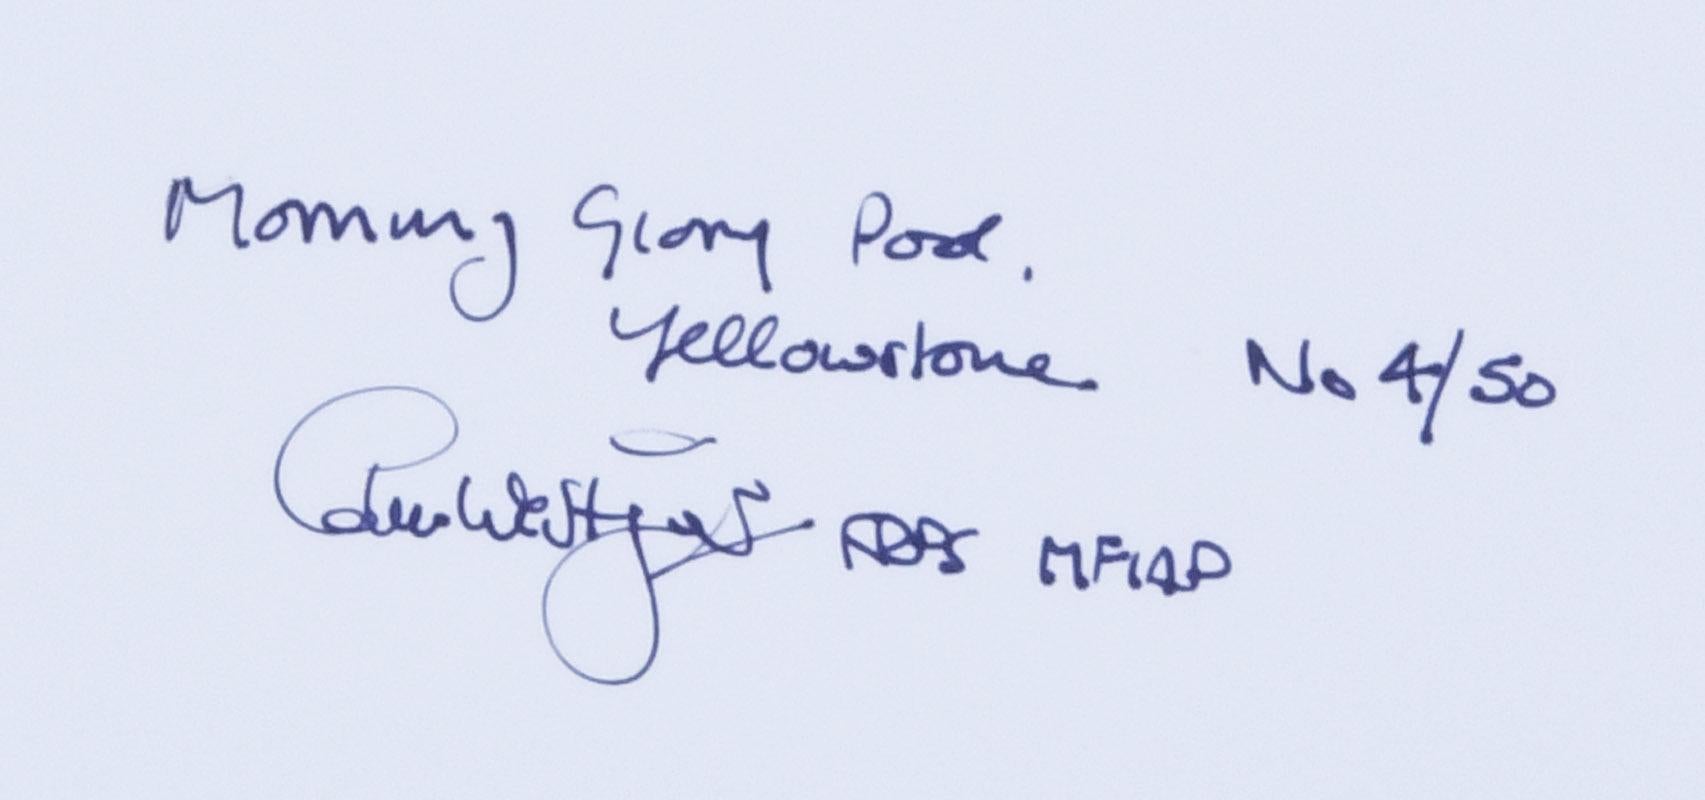 Morning Glory Pool.
Yellowstone No 4/50
MFIAP